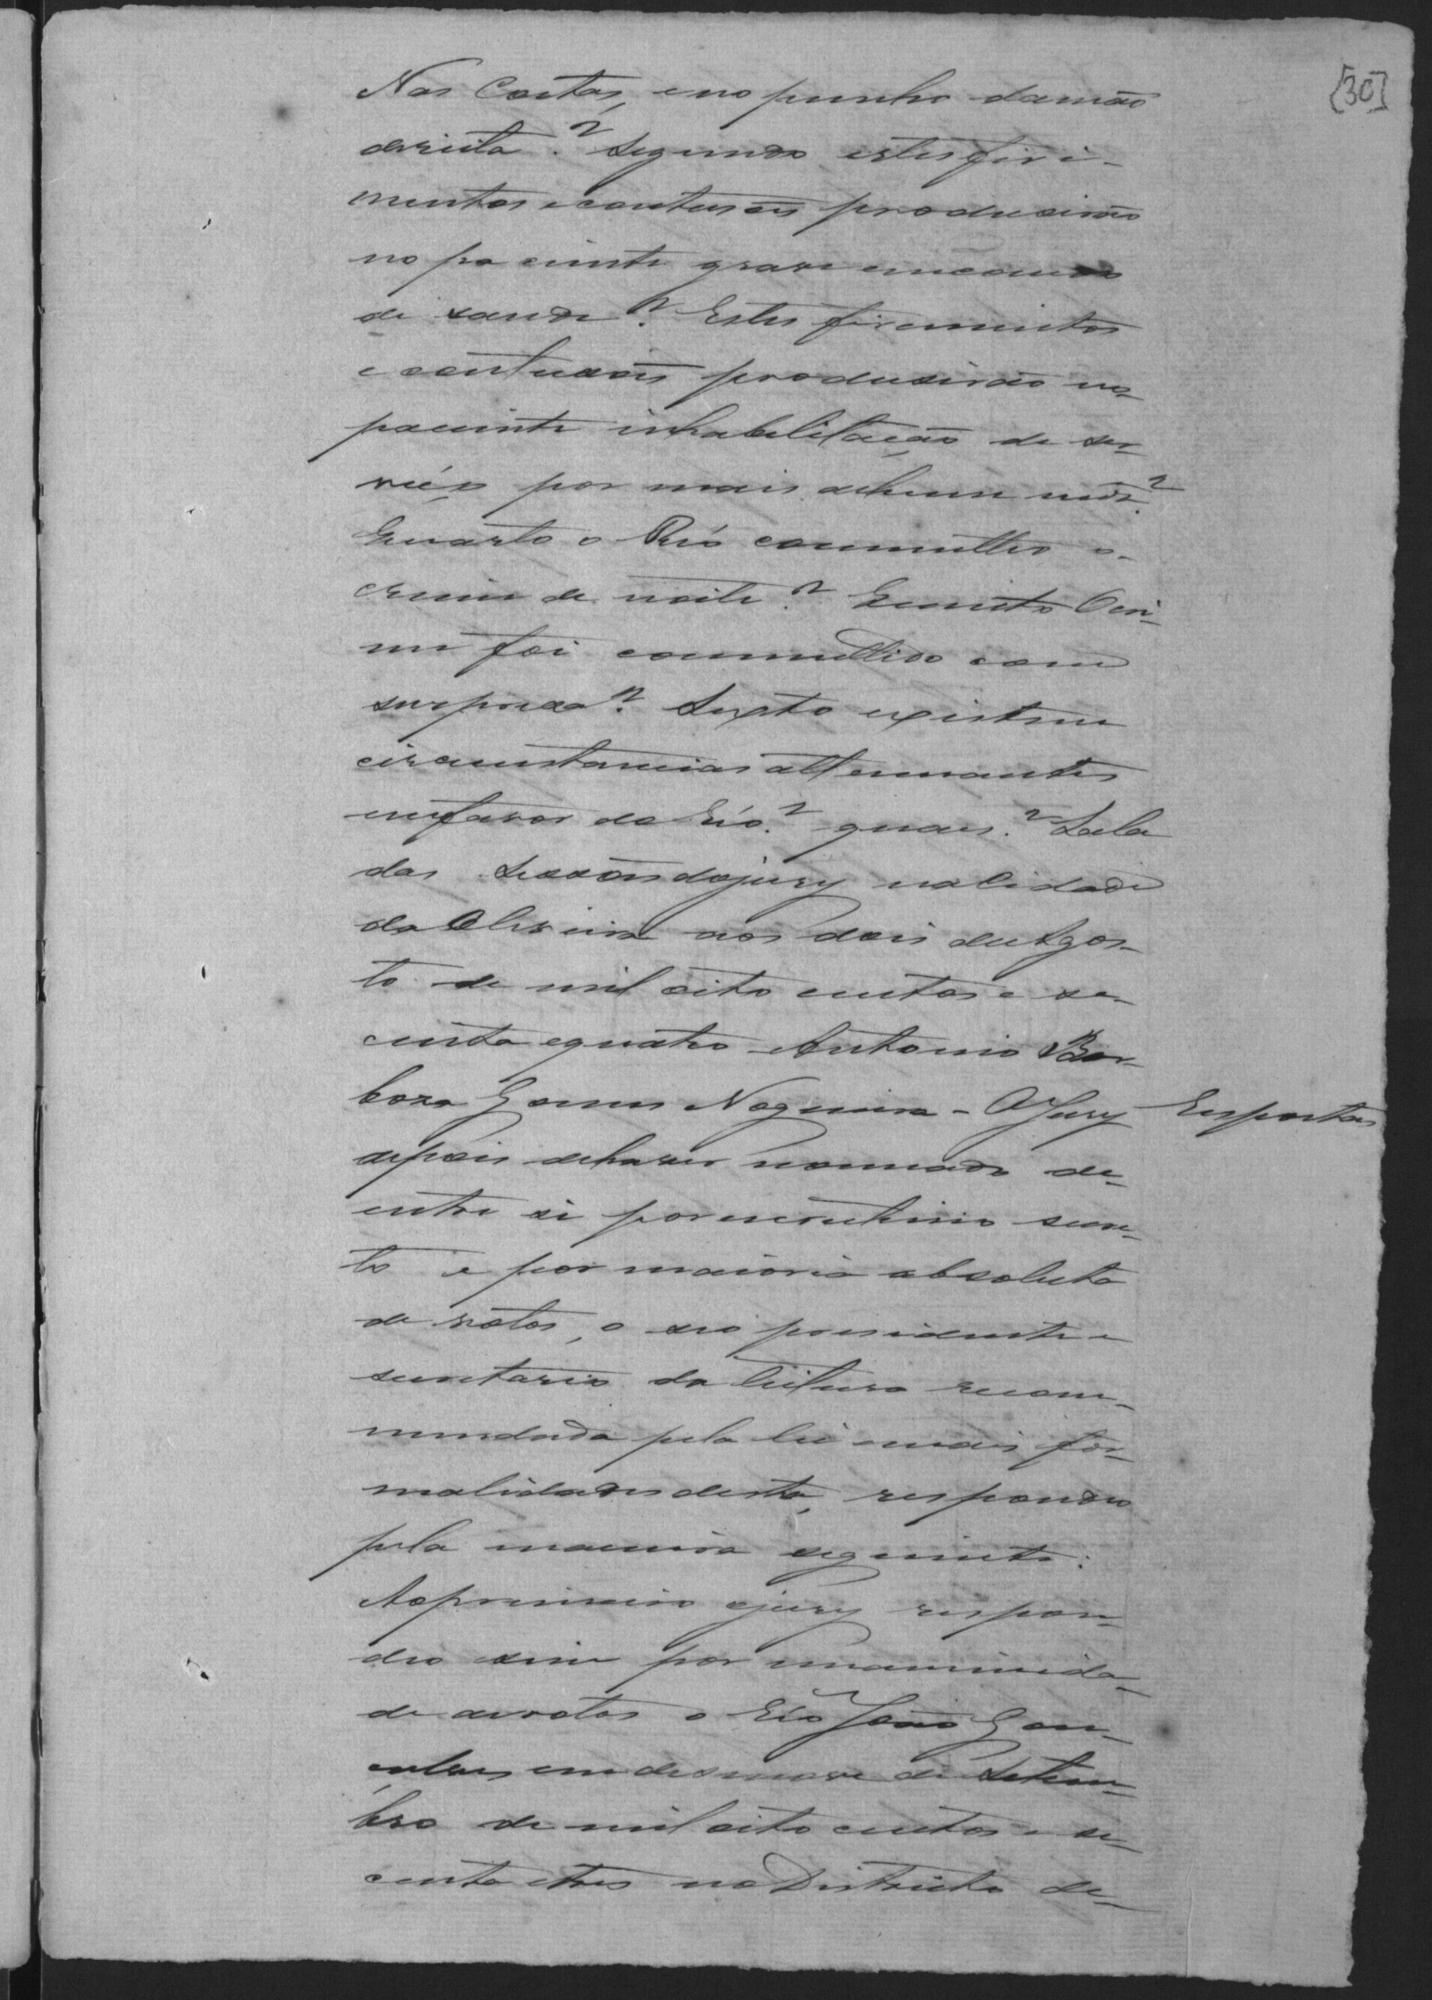 [30]
Nas Costas, eno punho damão
direita? Segundo estes feri-
mentos econtusões produsirão
no paciente grave encommodo
de saude? Estes ferimentos
e contusões produsirão no
paciente inhabilitação de ser-
viço por mais dehum mes?
Quarto o Réo commetteo o
crime de noite? Quinto Ocri-
me foi commettido com
surpresa? Sexto existem
circunstancias attenuantes
emfavor do Réo? quaes? Sala
das Sessões dojury nacidade
da Oliveira aos dois deAgos-
to de mil oito centos e se-
centa equatro Antonio Bar-
boza Gomes Nogueira - OJury Respostas
depois dehaver nomeado de-
entre si porescrutinio secre-
to e por maioria absoluta
de votos, o seo presidente e
secretario da leitura recom-
mendada pela lei emais for-
malidades desta, respondeo
pela maneira seguinte:
Aoprimeiro ojury respon-
deo sim por unanimida-
de devotos o Réo João Gon-
calves em desenove de Setem-
bro de mil oito centos e se-
centa etres no Districto de-